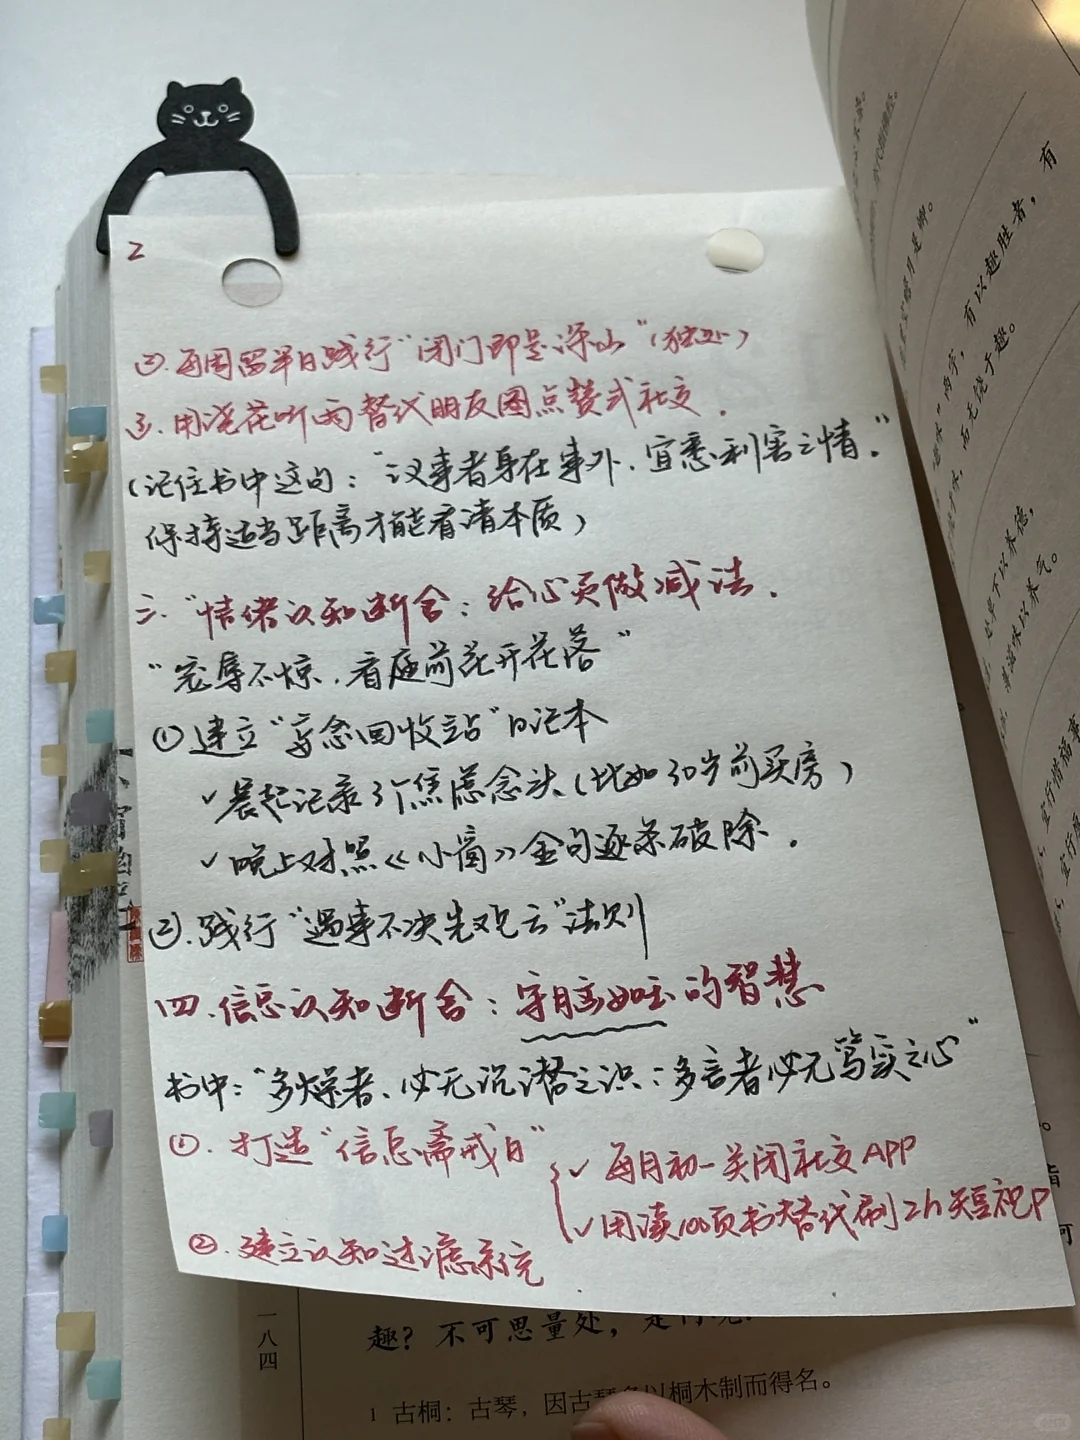 2
②.每周留半日践行"闭门即是深山"(独处)
③.用浇花听雨替代朋友圈点赞式社交.
(记住书中这句:"议事者身在事外,宜悉利害之情."
保持适当距离才能看清本质)
三."情绪认知断舍:给心灵做减法.
"宠辱不惊,看庭前花开花落"
①建立"妄念回收站"日记本
✓晨起记录3个焦虑念头(比如30岁前买房)
✓晚上对照《小窗》金句逐条破除.
②.践行"遇事不决先观云"法则
四.信息认知断舍:守脑如玉的智慧
书中:"多躁者,必无沉潜之识;多言者必无笃实之心"
①.打造"信息斋戒日"
✓每月初一关闭社交APP
✓用读100页书替代刷2h短视P
②.建立认知过滤系统
有以趣胜者,有
一八四
趣?不可思量处,
1 古桐:古琴,因古琴多以桐木制而得名。